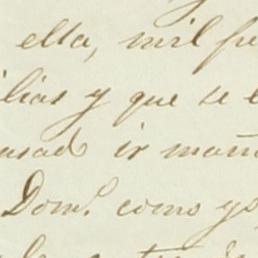 ella, mil fe
ilias y que se e
usad ir maña
Dom.º como ys